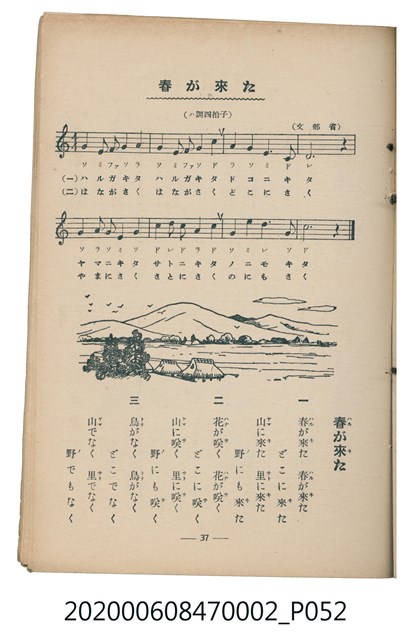 春が來た
(ハ調四拍子)
(文部省)
ソ ミファソラ ソ ミファソ ド ラ ソ ミ ド レ
(一) ハルガキタ ハルガキタ ドコニキタ
(二) はながさく はながさく どこにさく
ソ ラ ソ ミ ソ ド レ ド ラ ド ソ ミ レ ソ ド
ヤマニキタ サトニキタ ノニモキタ
やまにさく さとにさく のにもさく
春が來た
一 春が來た 春が來た
どこに來た
山に來た 里に來た
野にも來た
二 花が咲く 花が咲く
どこに咲く
山に咲く 里に咲く
野にも咲く
三 鳥がなく 鳥がなく
どこでなく
山でなく 里でなく
野でもなく
— 37 —
202000608470002_P052